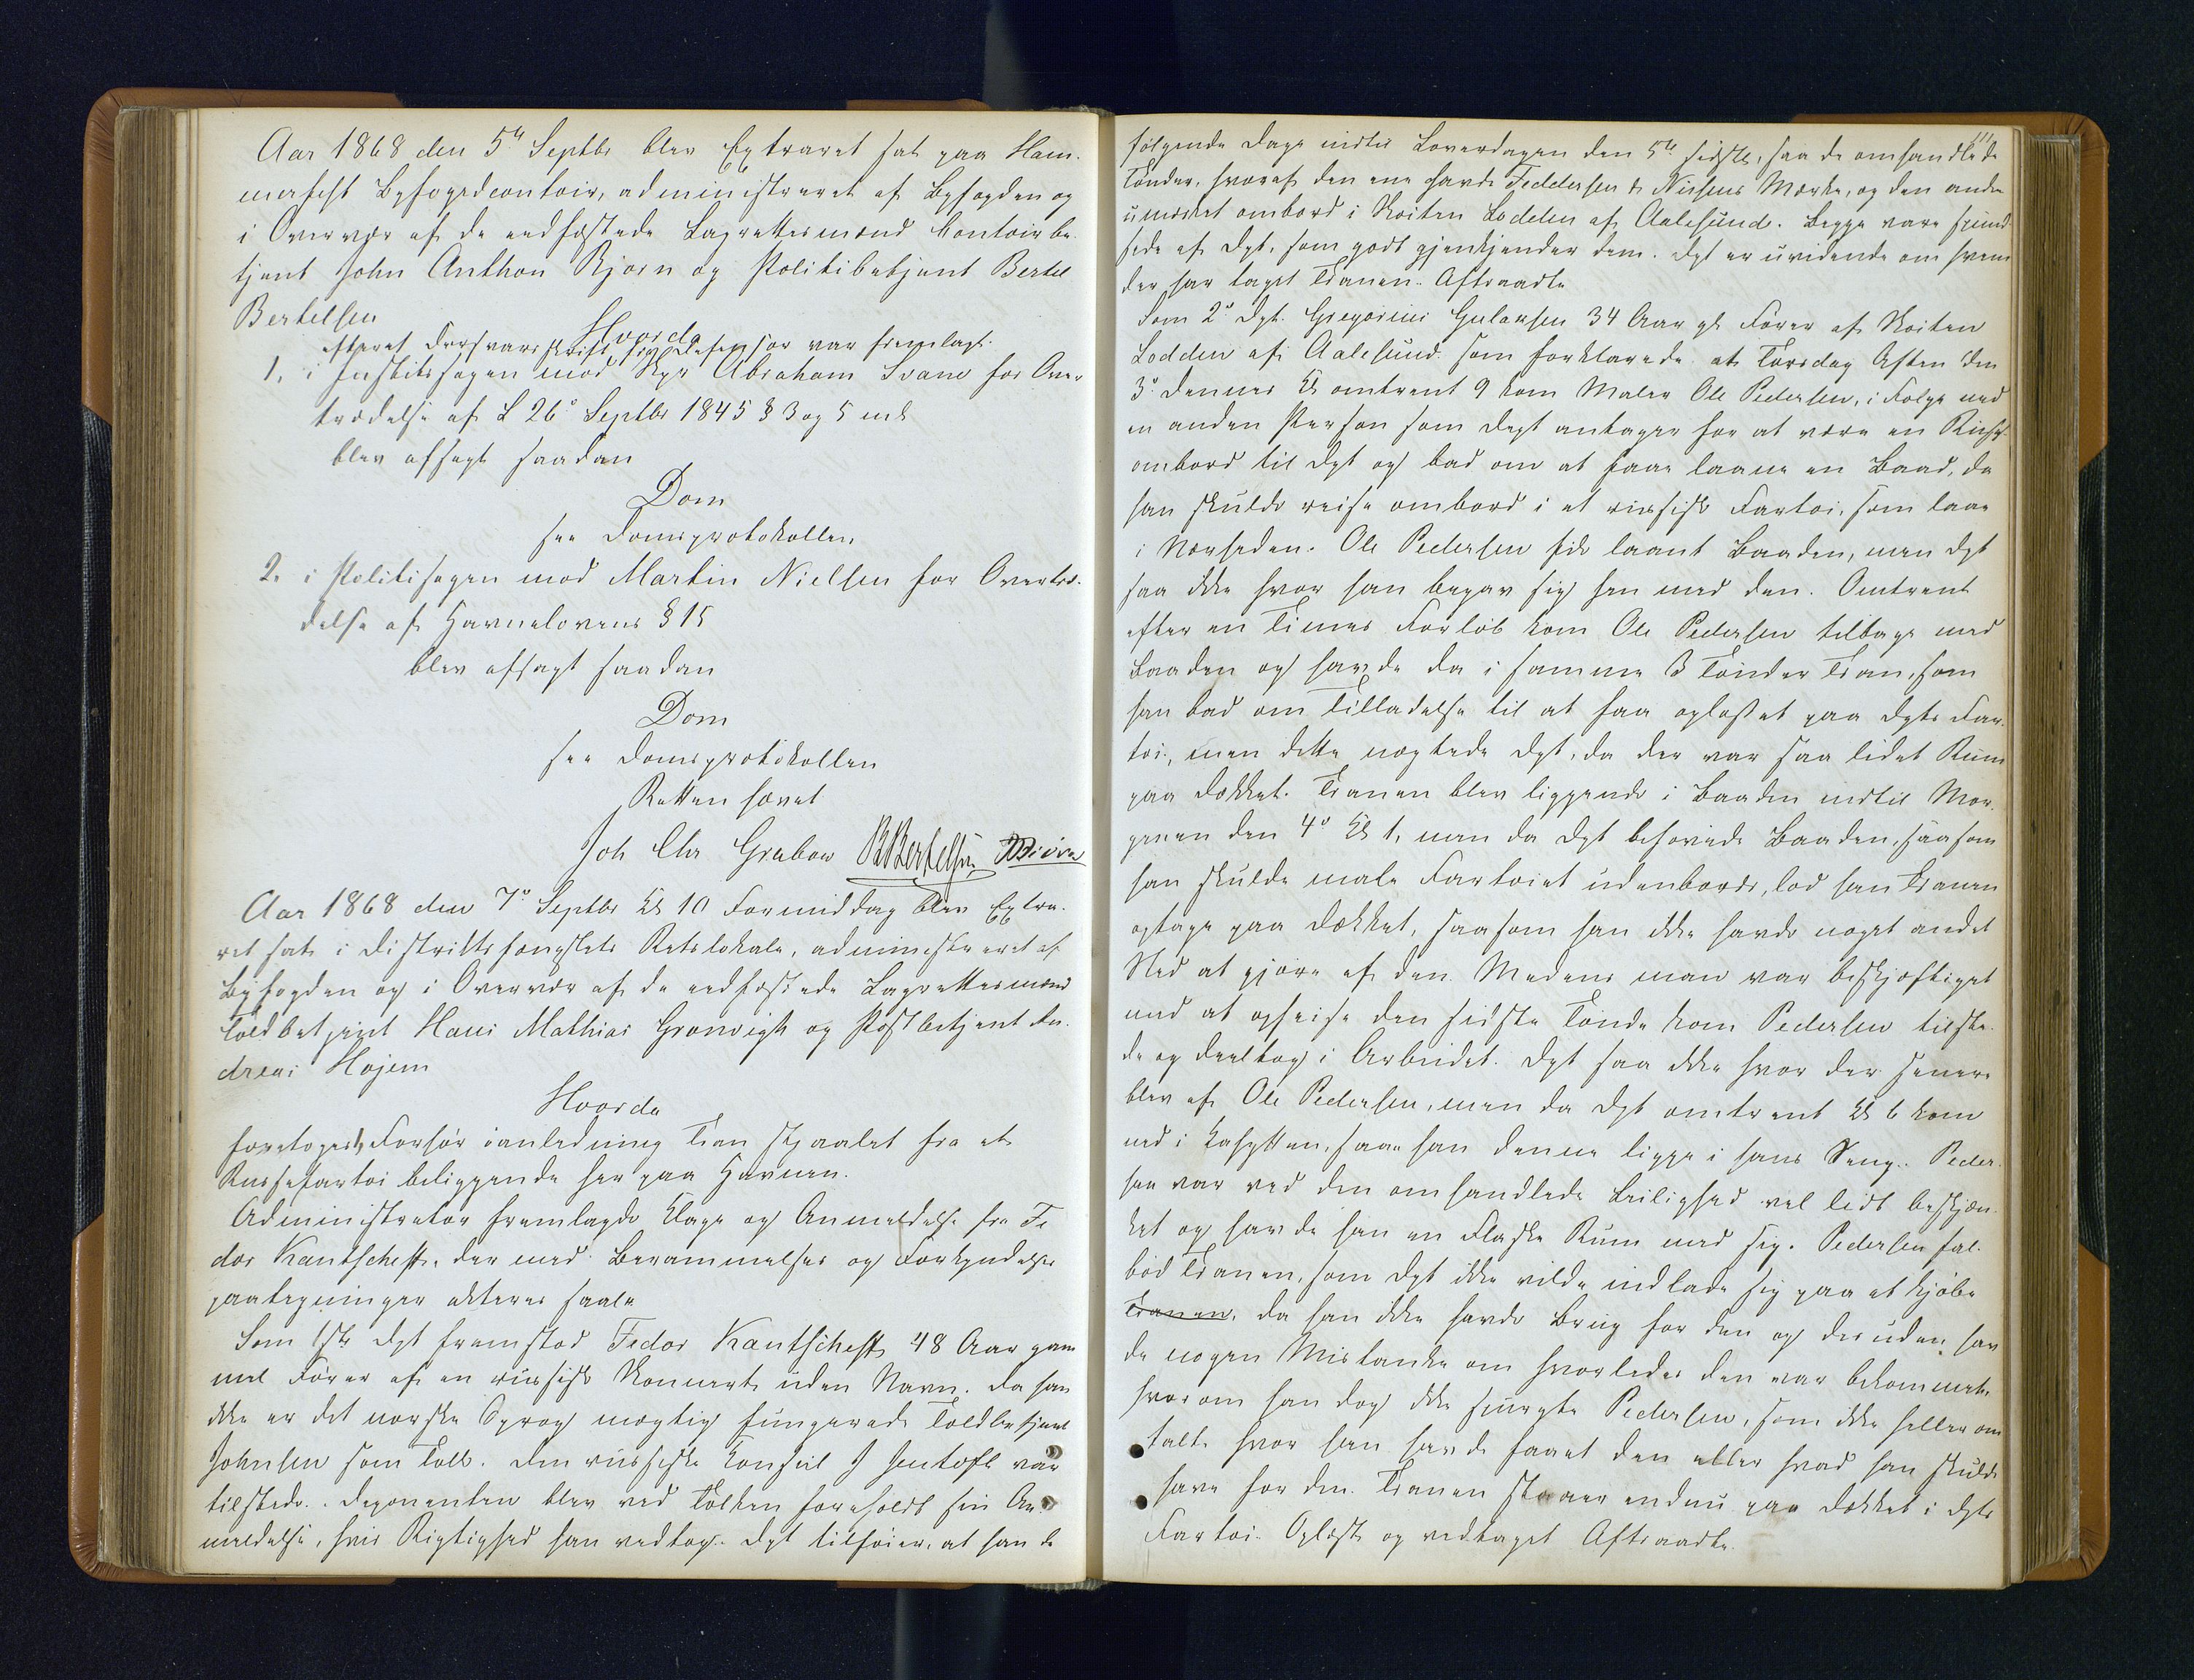 Aar 1868 den 5te Septbr blev Extraret sat paa Ham-
merfest Byfogedcontoir, administreret af Byfogden og
i Overvær af de eedfæstede Lagrettesmænd Contoirbe-
tjent John Anthon Bjørn og Politibetjent Bertel
Bertelsen
Hvorda
efterat Forsvarsskrift fra Defensor var fremlagt.
1. i Justitssagen mod Skpr Abraham Svane for Over-
trædelse af L 26de Septbr 1845 § 3 og 5 mk
blev afsagt saadan
Dom
see Domsprotokollen.
2. i Politisagen mod Martin Nielsen for Overtræ-
delse af Havnelovens § 15
blev afsagt saadan
Dom
see Domsprotokollen
Retten hævet
Joh Chr Grabow B Bertelsen Biørn
Aar 1868 den 7de Septbr Kl 10 Formiddag blev Extra-
ret sat i Distriktsfængslets Retslokale, administreret af
Byfogden og i Overvær af de eedfæstede Lagrettesmænd
Toldbetjent Hans Mathias Gronvigh og Postbetjent An-
dreas Højem
Hvorda
foretoges Forhør ianledning Tran stjaalet fra et
Russefartøi beliggende her paa Havnen.
Administrator fremlagde Klage og Anmeldelse fra Fe
dor Kantscheff, der med Berammelses og Forkyndelses
paategninger akteres saal.
Som 1ste Dpt fremstod Fedor Kantscheff 48 Aar gam
mel Fører af en russisk Skonnert uden Navn. Da han
ikke er det norske Sprog mægtig fungerede Toldbetjent
Johnsen som Tolk. Den russiske Consul J Jentoft var
tilstede. Deponenten blev ved Tolken foreholdt sin An-
meldelse, hvis Rigtighed han vedtog. Dpt tilføier, at han de
111
følgende Dage indtil Løverdagen den 5te sidstl. saa de omhandlede
Tønder, hvoraf den ene havde Feddersen & Nissens Mærke, og den anden
umærket ombord i Skøiten Lodden af Aalesund. Begge vare
sede af Dpt, som godt gjenkjender dem. Dpt er uvidende om hvem
der har taget Tranen. Aftraadte
Som 2de Dpt. Gregorius Gulaksen 34 Aar gl Fører af Skøiten
Lodden af Aalesund som forklarede at Torsdag Aften den
3de dennes Kl omtrent 9 kom Maler Ole Pedersen, i Følge med
en anden Person som Dept antager for at være en Russ
ombord til Dpt og bad om at faae laane en Baad, da
han skulde reise ombord i et russisk Fartøi, som laae
i Nærheden. Ole Pedersen fik laant Baaden, men Dpt
saa ikke hvor han begav sig hen med den. Omtrent
efter en Times Forløb kom Ole Pedersen tilbage med
Baaden og havde da i samme 3 Tønder Tran, som
han bad om Tilladelse til at faa oplosset paa Dpts Far-
tøi, men dette nægtede Dpt, da der var saa lidet Rum
paa Dækket. Tranen blev liggende i Baaden indtil Mor-
genen den 4de Kl 1, men da Dpt behøvede Baaden, saasom
han skulde male Fartøiet udenbords, lod han Tranen
optage paa Dækket, saasom han ikke havde noget andet
Sted at gjøre af den. Medens man var beskjæftiget
med at opheise den sidste Tønde kom Pedersen tilste-
de og deeltog i Arbeidet. Dpt saa ikke hvor der senere
blev af Ole Pedersen, men da Dpt omtrent Kl 6 kom
ned i Kahytten, saae han denne ligge i hans Seng. Peder-
sen var ved den omhandlede Leilighed vel lidt beskjæn-
ket og havde han en Flaske Rum med sig. Pedersen fal-
bød Tranen, som Dpt ikke vilde indlade sig paa at kjøbe
Tranen, da han ikke havde Brug for den og desuden hav
de nogen Mistanke om hvorledes den var bekommet,
hvorom han dog ikke spurgte Pedersen, som ikke heller om
talte hvor han havde faaet den eller hvad han skulde
have for den. Tranen staaer endnu paa Dækket i Dpts
Fartøi. Oplæst og vedtaget Aftraadte.